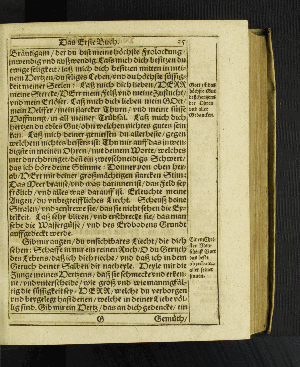 Das Erste Buch. 25
Bräutigam / der du bist meine höchste Frolockung /
inwendig und außwendig. Laß mich dich besitzen du
ewige seligkeit / laß mich dich besitzen mitten in mei-
nen Hertzen / du seliges Leben / und du höchste süssig-
keit meiner Seelen. Laß mich dich lieben / HERR
meine Stercke / HErr mein Felß und meine Zuflucht /
und mein Erlöser. Laß mich dich lieben mein GOtt /
mein Helffer / mein starcker Thurn / und meine süsse
Hoffnung / in all meiner Trübsal. Laß mich dich
hertzen du edles Gut / ohn welchen nichtes gutes sein
kan. Laß mich deiner geniessen du allerbeste / gegen
welchen nichtes bessers ist: Thu mir auff das inwen-
digste in meinen Ohren / mit deinem Worte / welches
nur durchdringet / den ein zweyschneidigs Schwert /
das ich höre deine Stimme. Donner von oben her-
ab HERR mit deiner großmächtigen starcken Stim
Das Meer brause und was darinnen ist / das Feld sey
frölich / und alles was darauff ist. Erleuchte meine
Augen / du unbegreiffliches Liecht
Stralen / und zerstrewe sie / das sie nicht sehen die Ey-
telkeit. Laß sehr blitzen / und erschrecke sie / das man
sehe die Wassergüsse / und des Erdbodens Grund
auffgedeckt werde.
Gib mir augen / du unsichtbares Liecht / die dich
sehen: Schaffe in mir ein reinen Ruch / O du Geruch
des Lebens / daß ich dich rieche / und daß ich in dem
Geruch deiner Salben dir nacheyle. Heyle mir die
Zunge meines Hertzens / daß sie schmecke und erken-
ne / und unterscheide / wie groß und wie mannigfäl-
tig die süssigkeit sey / HERR / welche du verborgen
und beygelegt hast denen / welche in deiner Liebe völ-
lig sind. Gib mir ein Hertz / das an dich gedencke / ein
G Gemüth /
Gott ist das
höchste
der Ohren
und aller
Gedancken.